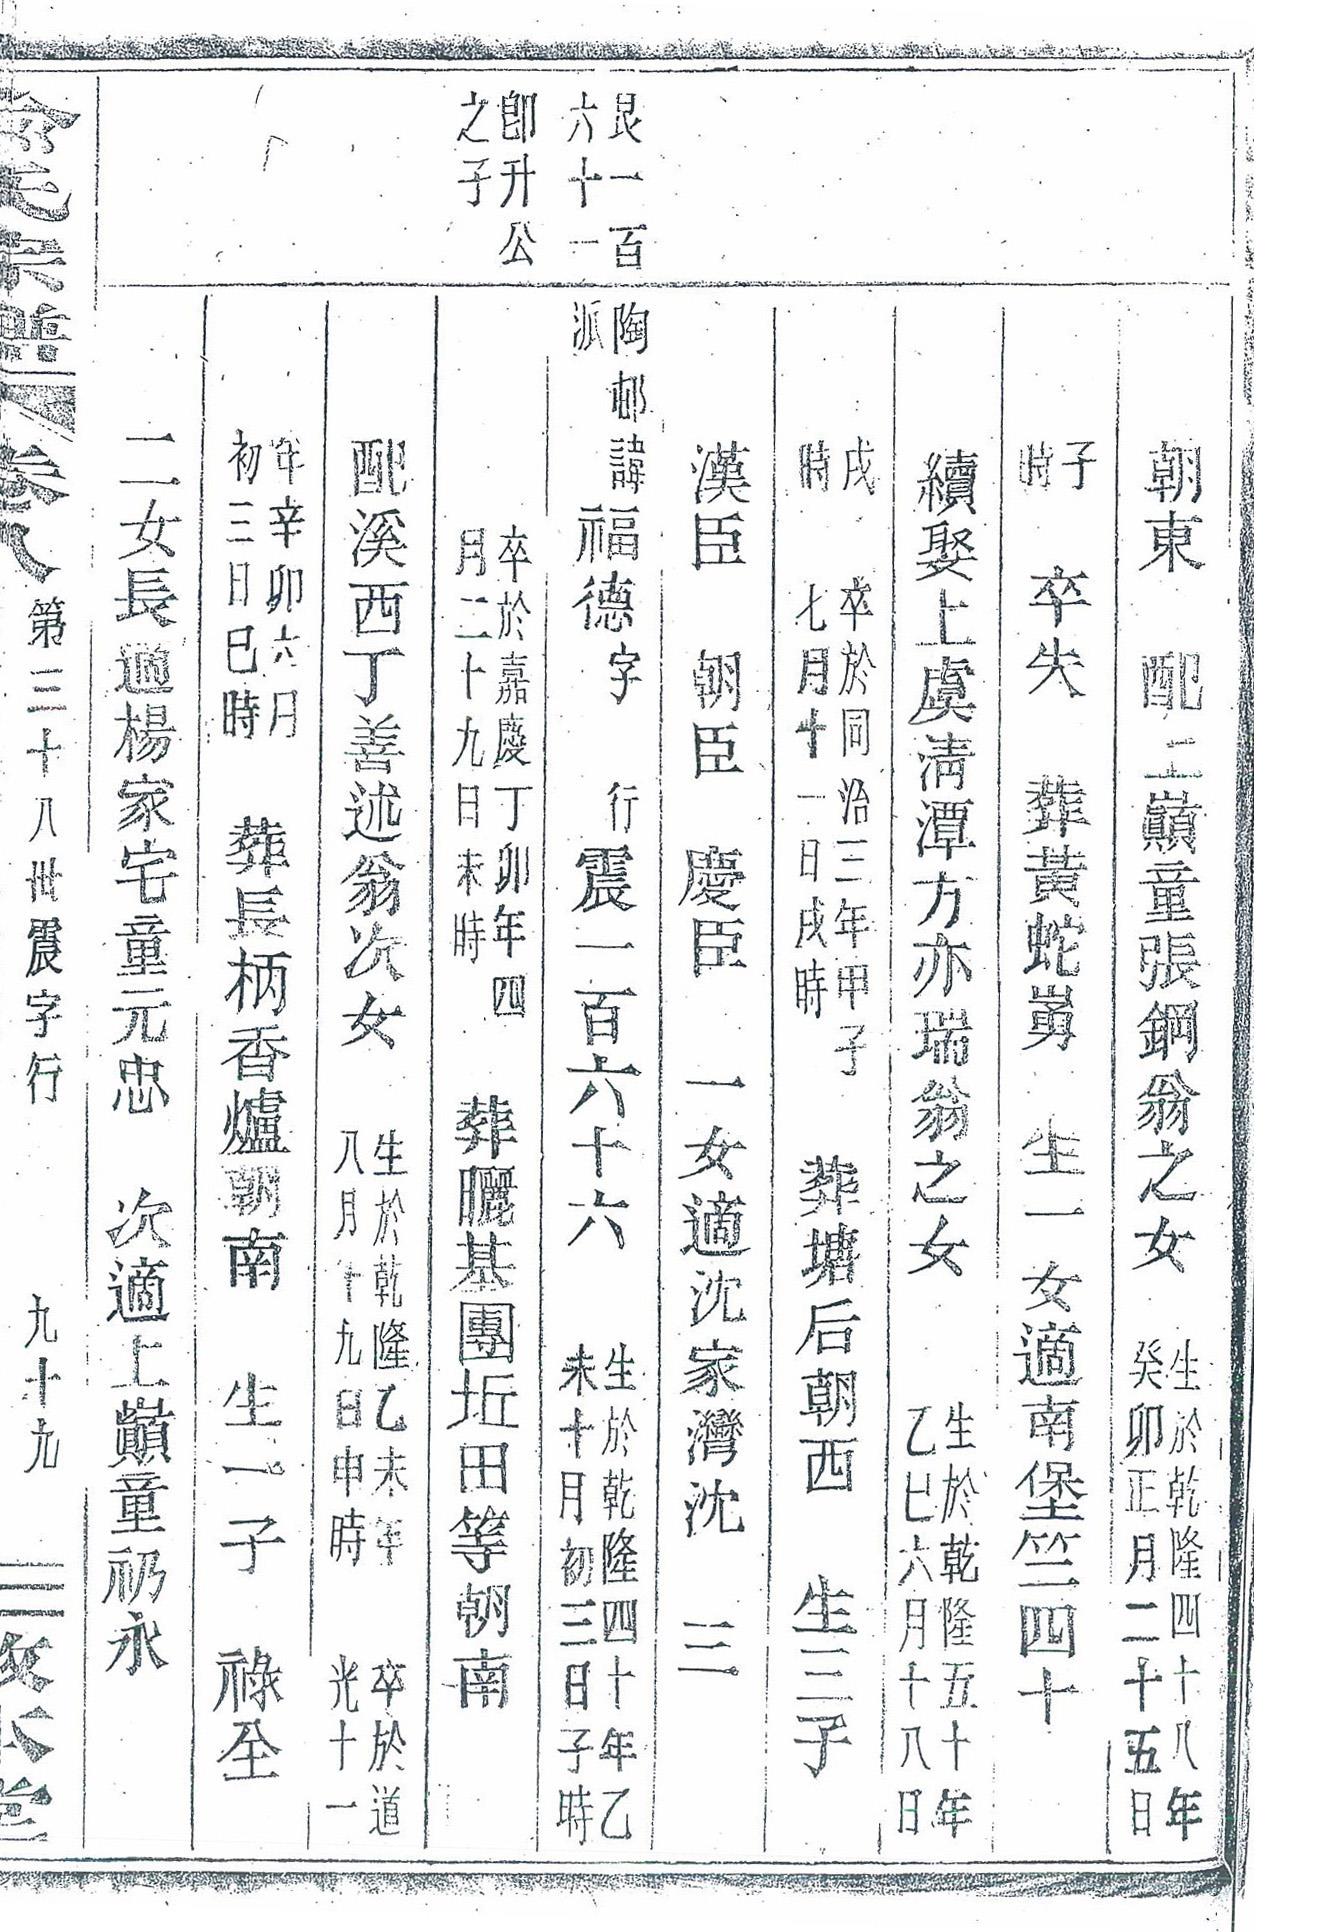 朝東　配上巔童張鋼翁之女　生於乾隆四十八年
癸卯正月二十五日
子
時　卒失　葬黃蛇崗　生一女適南堡竺四十
續娶上虞淸潭方亦瑞翁之女　生於乾隆五十年
乙巳六月十八日
戌
時　卒於同治三年甲子
七月十一日戌時　葬塘后朝西　生三子
漢臣　朝臣　慶臣　一女適沈家灣沈　三
艮一百
六十一
陶邨
派　諱福德字　行震一百六十六　生於乾隆四十年乙
未十月初三日子時
卽升公
之子
卒於嘉慶丁卯年四
月二十九日未時　葬曬基團坵田等朝南
配溪西丁善述翁次女　生於乾隆乙未年
八月十九日申時　卒於道
光十一
年辛卯六月
初三日巳時　葬長柄香爐朝南　生一子　祿全
二女長適楊家宅童元忠　次適上巔童礽永
氏宗譜　卷八　第三十八世震字行　九十九　敦本堂